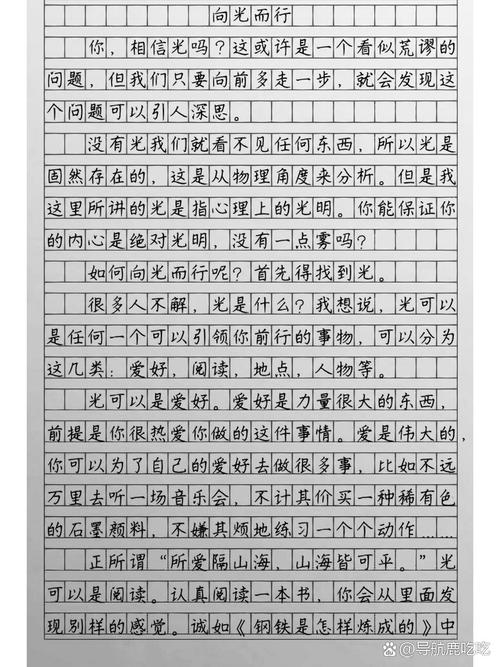 向光而行
你，相信光吗？这或许是一个看似荒谬的
问题，但我们只要向前多走一步，就会发现这
个问题可以引人深思。
没有光我们就看不见任何东西，所以光是
固然存在的，这是从物理角度来分析。但是我
这里所讲的光是指心理上的光明。你能保证你
的内心是绝对光明，没有一点雾吗？
如何向光而行呢？首先得找到光。
很多人不解，光是什么？我想说，光可以
是任何一个可以引领你前行的事物，可以分为
这几类：爱好，阅读，地点，人物等。
光可以是爱好。爱好是力量很大的东西，
前提是你很热爱你做的这件事情。爱是伟大的，
你可以为了自己的爱好去做很多事，比如不远
万里去听一场音乐会，不计其价买一种稀有色
的石墨颜料，不嫌其烦地练习一个个动作……
正所谓“所爱隔山海，山海皆可平。”光
可以是阅读。认真阅读一本书，你会从里面发
现别样的感觉。诚如《钢铁是怎样炼成的》中
@导航鹿吃吃